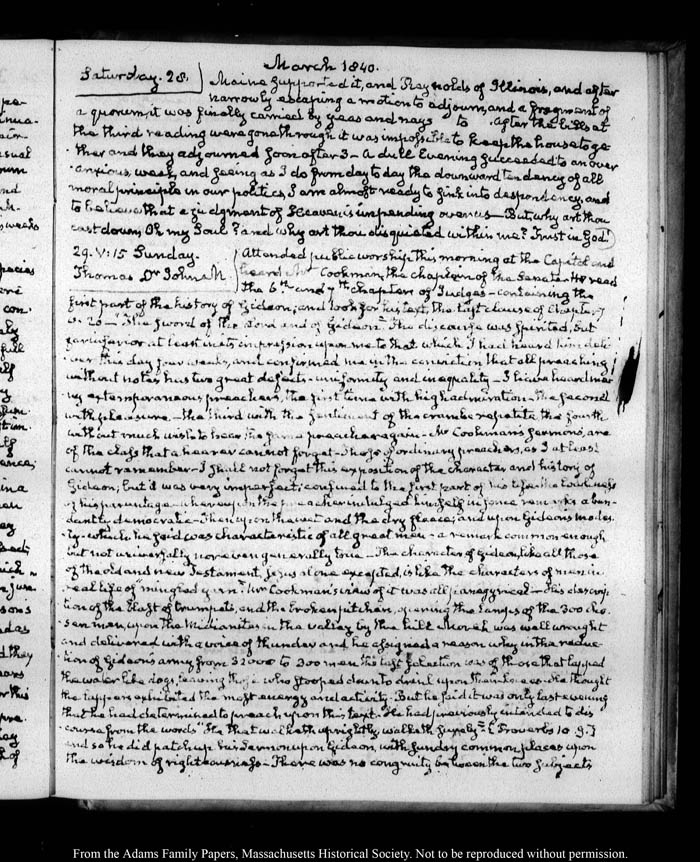 March 1840.
Saturday. 28. Maine supported it, and Reynolds of Illinois, and after
narrowly escaping a motion to adjourn, and a fragment of
a quorum, it was finally carried by yeas and nays to . After the bills at
the third reading were gone through it was impossible to keep the house toge
ther and they adjourned soon after 3 - A dull Evening succeeded to an over
anxious week, and seeing as I do from day to day the downward tendency of all
moral principle in our politics, I am almost ready to sink into despondency, and
to believe that a judgment of Heaven is impending over us - But why art thou
cast down, Oh my Soul? and why art thou disquieted within me? Trust in God!
29. V:15 Sunday. Attended public worship this morning at the Capitol and
Thomas Dr John M. heard Mr Cookman, the chaplain of the Senate. He read
the 6th and 7th chapters of Judges - containing the
first part of the history of Gideon; and took for his text, the last clause of Chapter 7
v. 20 - "The Sword of the Lord and of Gideon" The discourse was spirited, but
far inferior at least in its impression upon me to that which I had heard him deli
ver this day four weeks, and confirmed me in the conviction that all preaching
without notes has two great defects - uniformity and inequality - I have heard ma
ny extemporaneous preachers, the first time with high admiration - the second
with pleasure - the third with the sentiment of the crambe repetita the fourth
without much wish to hear the same preacher again - Mr Cookman's Sermons, are
of the class that a hearer cannot forget - Those of ordinary preachers, as I at least
cannot remember - I shall not forget this exposition of the character and history of
Gideon; but it was very imperfect; confined to the first part of his life. the lowliness
of his parentage - whereupon the preacher indulged himself in some remarks abun
dantly democratic - Then upon the wet and the dry fleece; and upon Gideon's modes
ty - which he said was characteristic of all great men - a remark common enough
but not universally nor even generally true - The character of Gideon, like all those
of the old and new Testament, Jesus alone excepted, is like the characters of men in
real life of "mingled yarn". Mr Cookman's view of it was all panegyrical - His descrip
tion of the blast of trumpets, and the broken pitchers, opening the lamps of the 300 cho
sen men, upon the Midianites in the valley by the hill Moreh was well wrought
and delivered with a voice of thunder and he assigned a reason why in the reduc
tion of Gideon's army from 32000 to 300 men the last selection was of those that lapped
the water like dogs, leaving those who stooped down to drink upon their knees - he thought
the lappers exhibited the most energy and activity. But he said it was only last evening
that he had determined to preach upon this text. He had previously intended to dis
course from the words "He that walketh uprightly walketh surely" [Proverbs 10. 9.]
and so he did patch up his sermon upon Gideon, with sundry common places upon
the wisdom of righteousness - There was no congruity between the two subjects
From the Adams Family Papers, Massachusetts Historical Society. Not to be reproduced without permission.